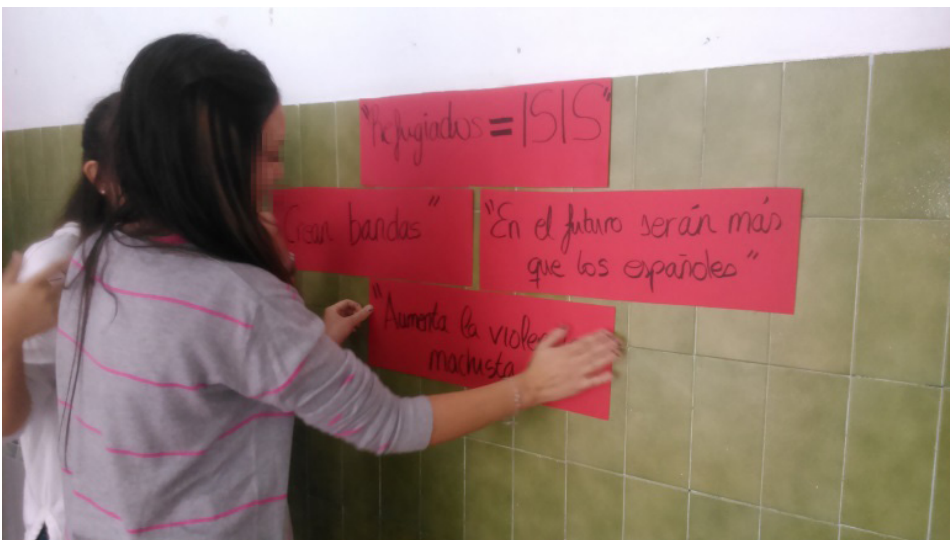 "Refugiados = ISIS"
"Crean bandas"
"En el futuro serán más
que los españoles"
"Aumenta la
machista